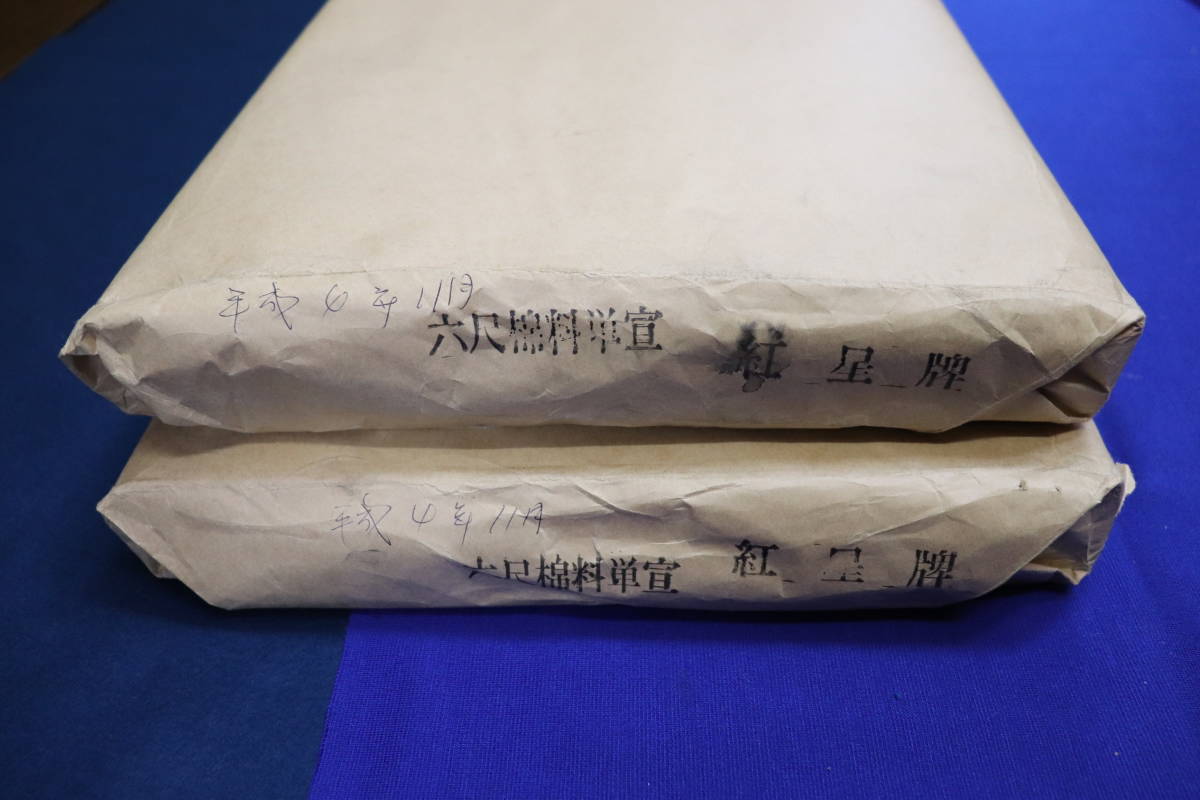 平成4年11月
六尺棉料単宣 紅星牌
平成4年11月
六尺棉料単宣 紅星牌